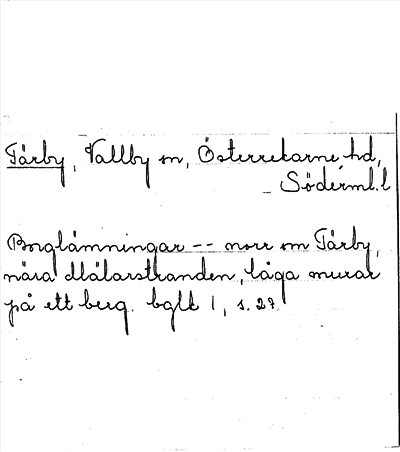 Tärby, Vallby sn, Österrekarne hd,
Söderml. l
Borglämningar -- norr om Tärby,
nära Mälarstranden, låga murar
på ett berg. bglt 1, s. 27.